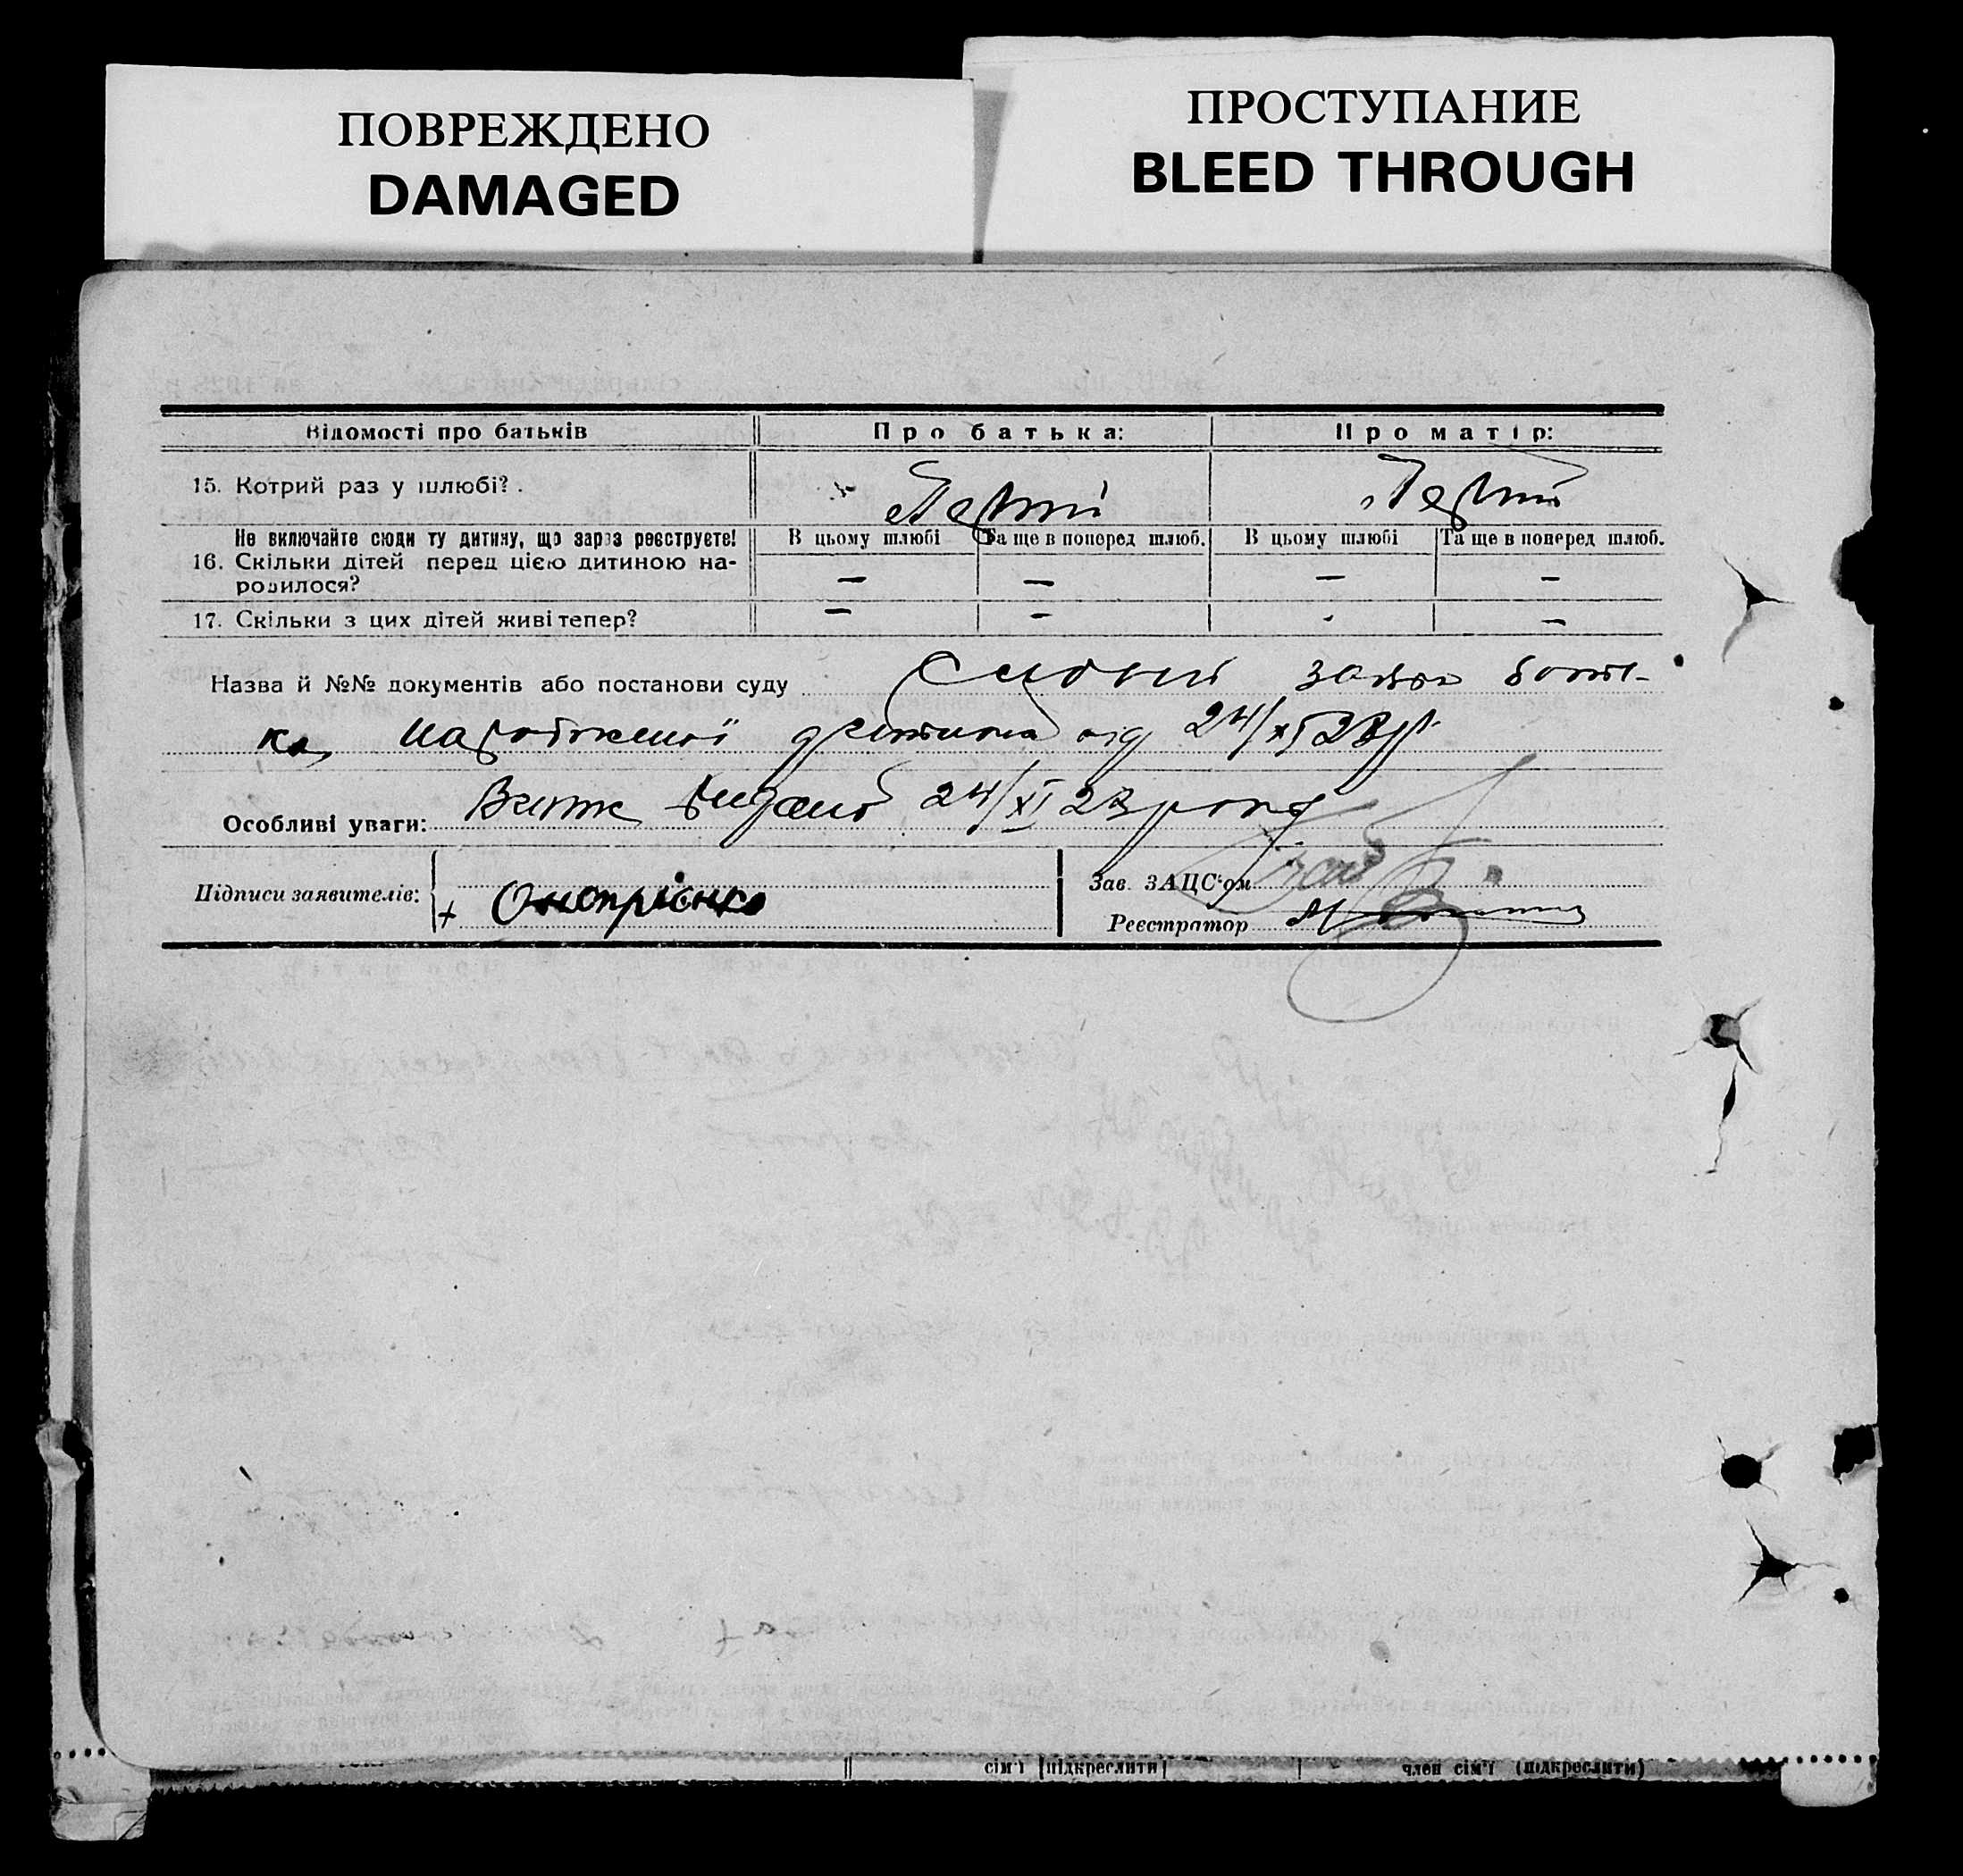 ПОВРЕЖДЕНО
DAMAGED
ПРОСТУПАНИЕ
BLEED THROUGH
Відомості про батьків
Про батька:
Про матір:
15. Котрий раз у шлюбі?
Перший
Перший
Не включайте сюди ту дитину, що зараз реєструєте!
В цьому шлюбі
Та ще в поперед шлюб.
В цьому шлюбі
Та ще в поперед шлюб.
16. Скільки дітей перед цією дитиною на-
родилося?
—
—
—
—
17. Скільки з цих дітей живі тепер?
—
—
—
Назва й №№ документів або постанови суду
заява бать-
ка, народженої дитини від 24/XI 28 р.
Особливі уваги: Витяг видано 24/XI 28 року
Підписи заявителів:
+ Онопрієнко
Зав. ЗАЦС'ом
Реєстратор
сім'ї (підкреслити)
член сім'ї (підкреслити)